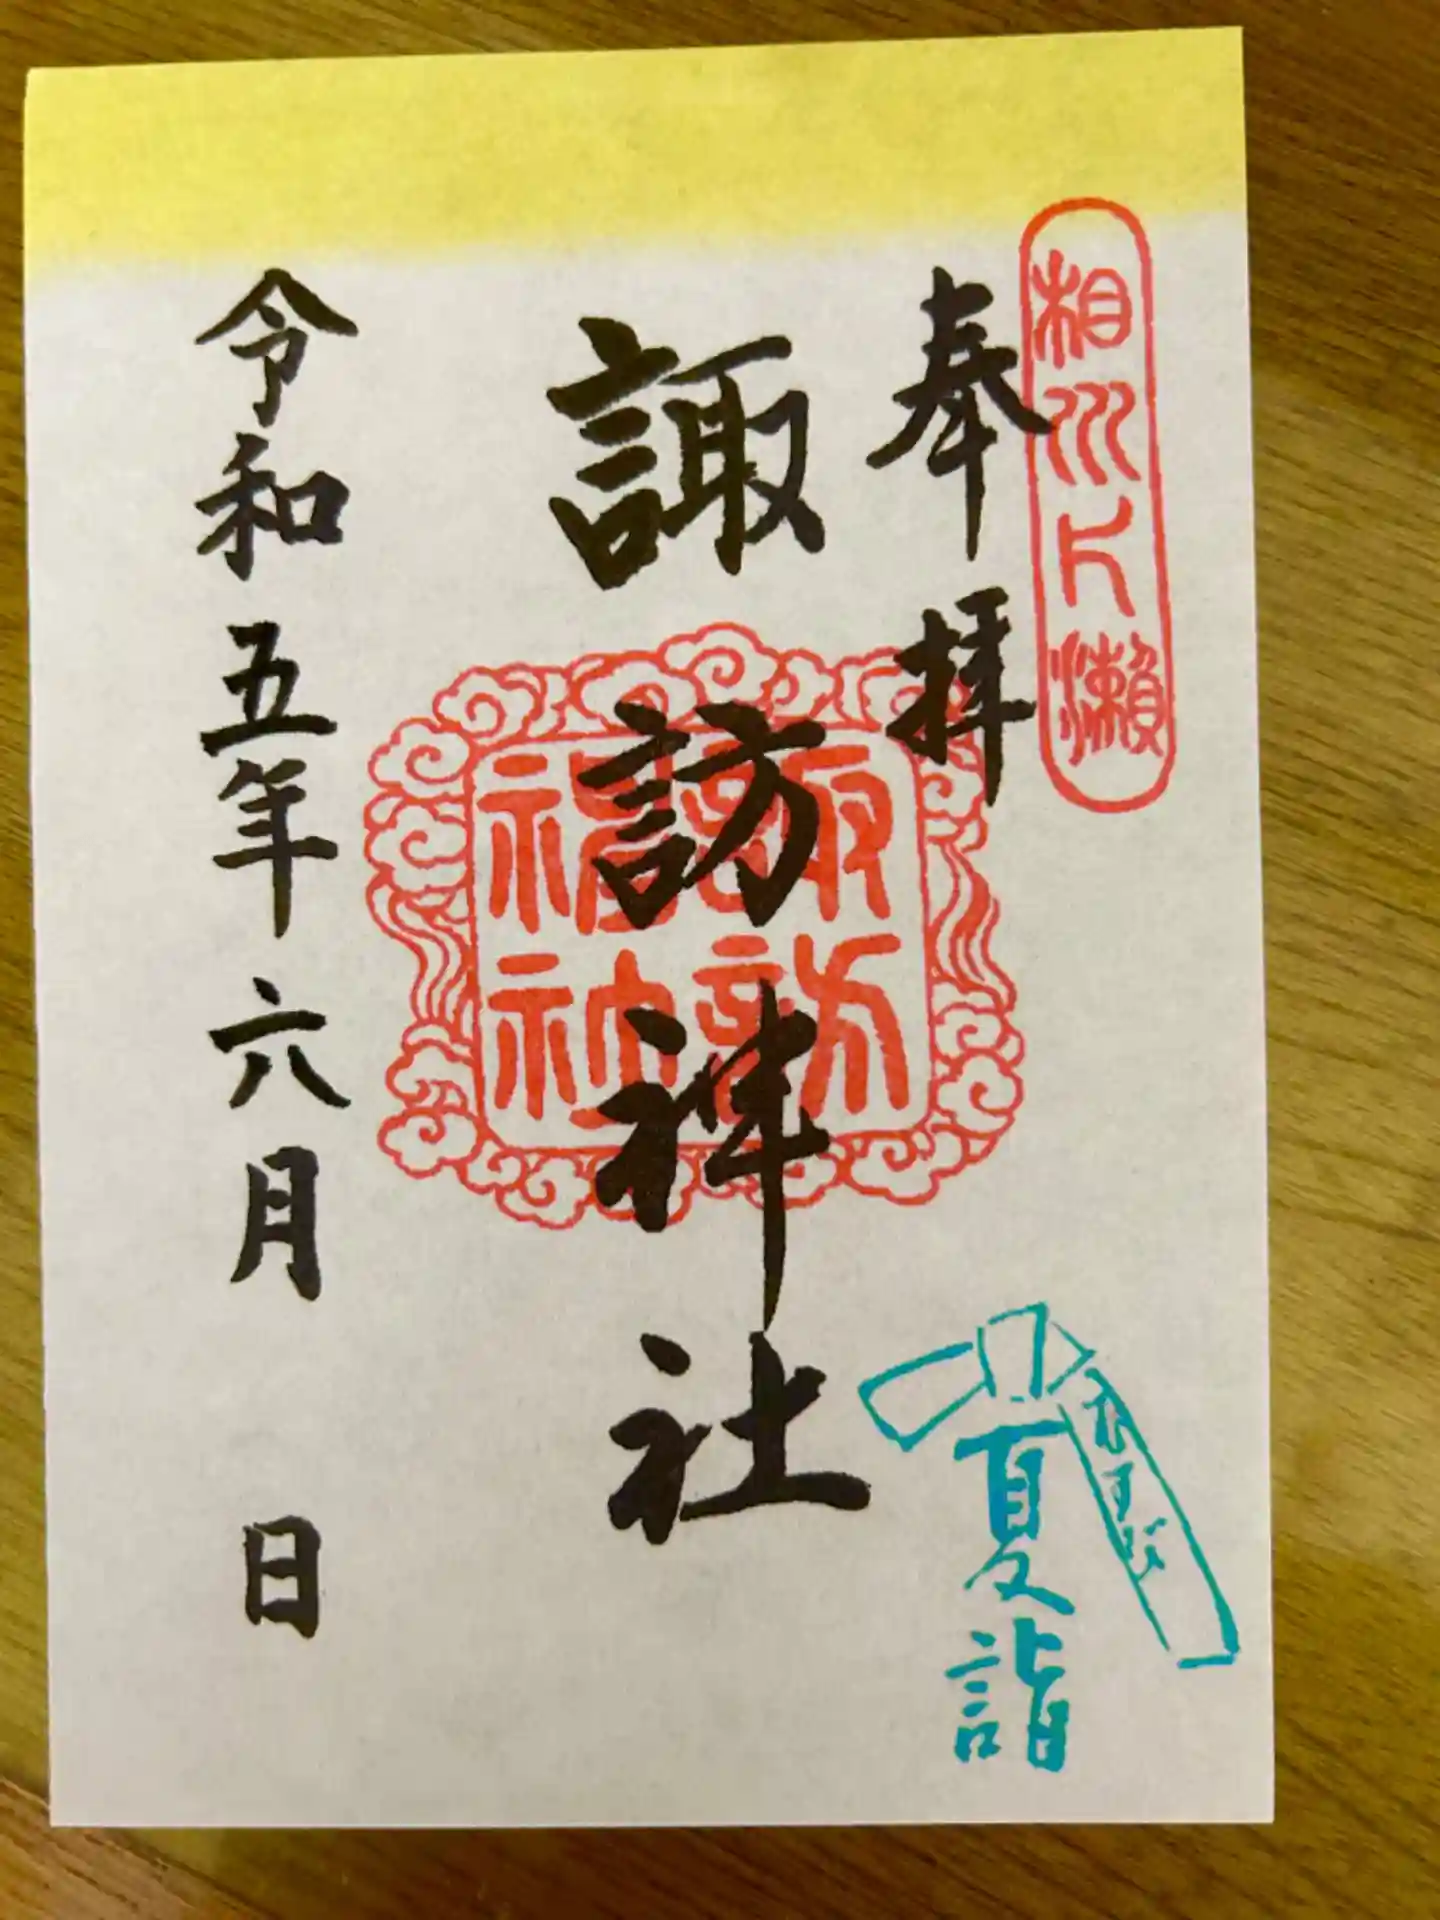 相州片瀬
奉拝
諏訪神社
諏訪神社
夏詣
令和五年六月 日